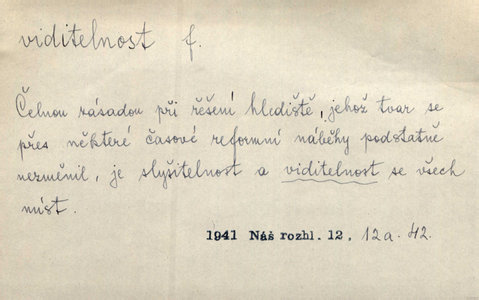 viditelnost f.
Čelnou zásadou při řešení hlediště, jehož tvar se
přes některé časové reformní náběhy podstatně
nezměnil, je slyšitelnost a viditelnost se všech
míst.
1941 Náš rozhl. 12, 12a. 42.